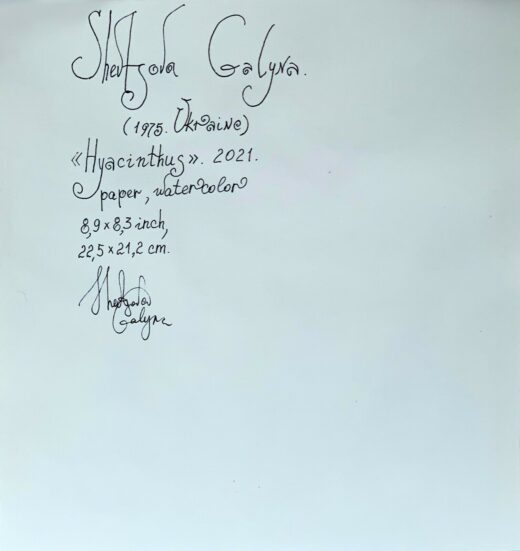 Shevtsova Galyna.
(1975. Ukraine)
«Hyacinthus». 2021.
paper, watercolor
8,9 x 8,3 inch,
22,5 x 21,2 cm.
Shevtsova
Galyna